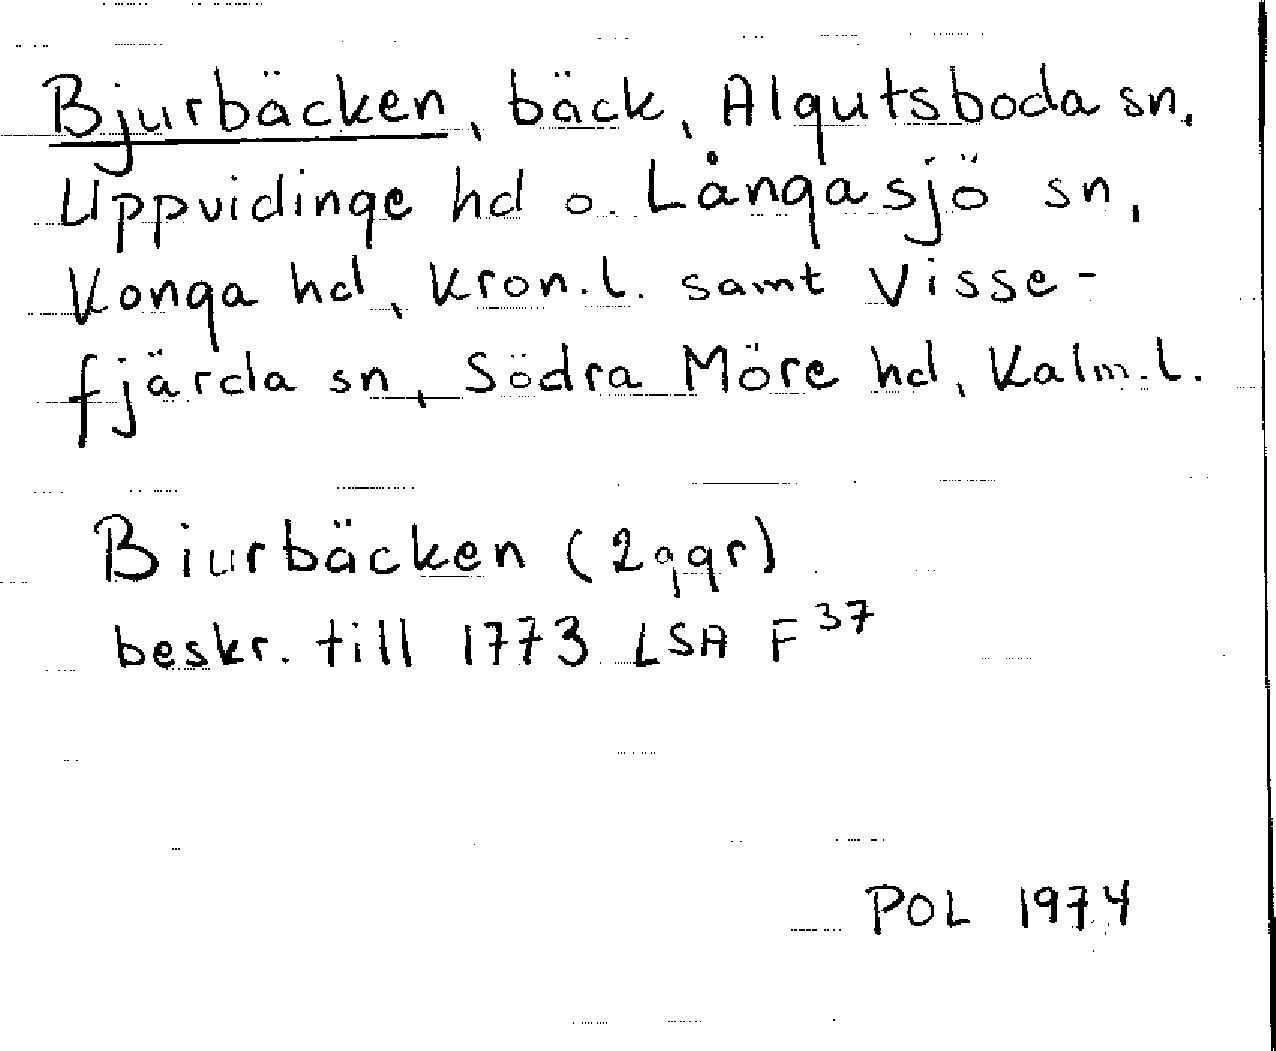 Bjurbäcken, bäck, Algutsboda sn,
Uppvidinge hd o. Långasjö sn,
Konga hd, Kron.l. samt Visse-
fjärda sn, Södra Möre hd, Kalm.l.
Biurbäcken (2ggr)
beskr. till 1773 LSA F 37
POL 1974